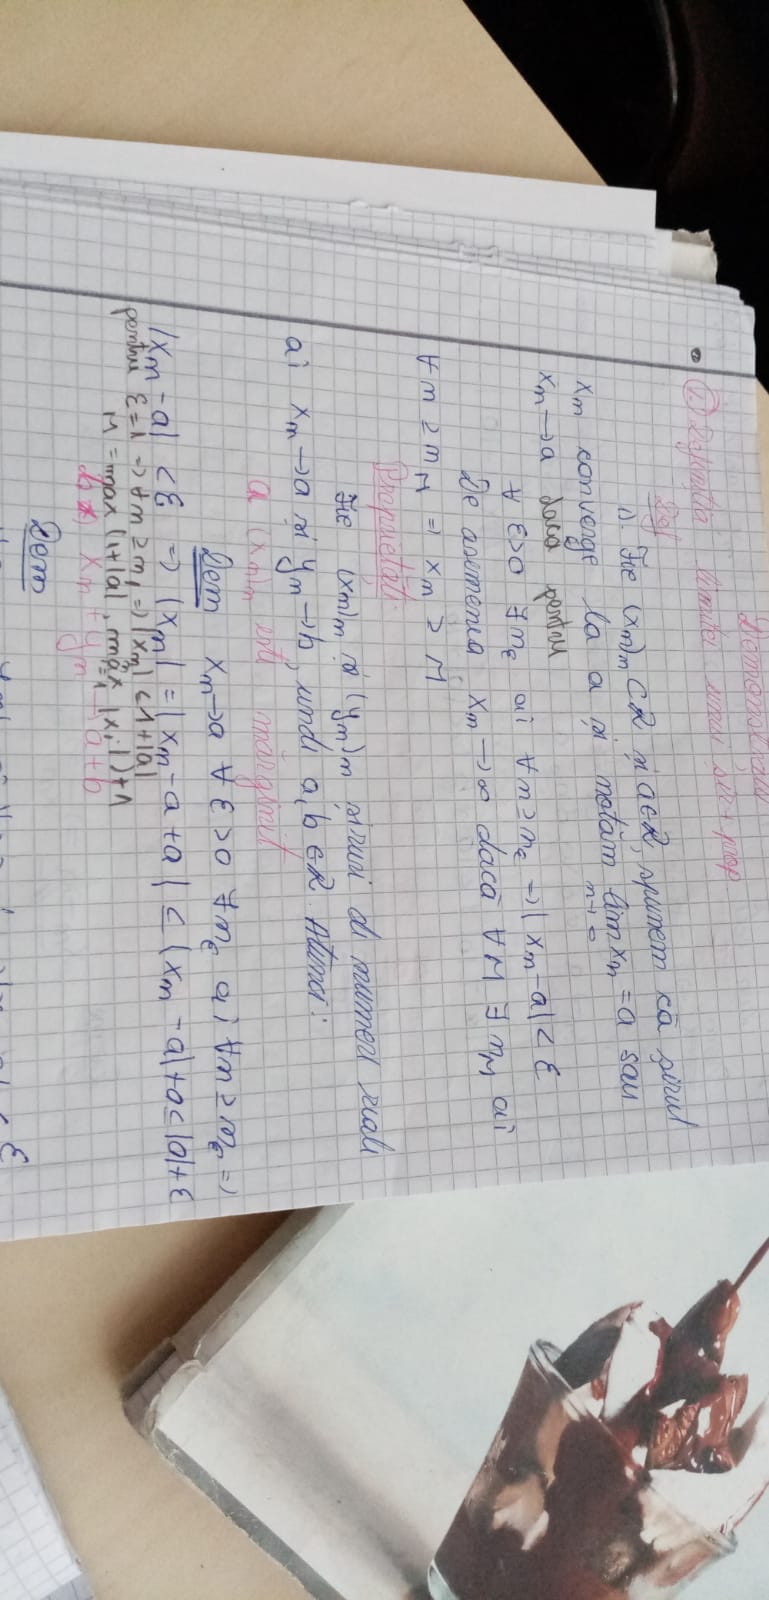 Demonstrații
1. Definiția limitei unui șir + prop
Def
1). Fie (xₙ)ₙ ⊂ ℝ și a∈ℝ, spunem că șirul
xₙ converge la a și notăm lim xₙ = a sau
n→∞
xₙ → a dacă pentru
∀ ε>0 ∃ n_ε ai ∀n≥n_ε => |xₙ-a| < ε
De asemenea xₙ → ∞ dacă ∀ M ∃ n_M ai
∀n ≥ n_M => xₙ > M
Proprietăți
Fie (xₙ)ₙ și (yₙ)ₙ șiruri de numere reale
ai xₙ → a și yₙ → b, unde a, b ∈ℝ. Atunci:
a (xₙ)ₙ este mărginit
Dem xₙ → a ∀ ε>0 ∃ n_ε a i ∀n ≥ n_ε =>
|xₙ-a| < ε => |xₙ| = |xₙ-a+a| ≤ |xₙ-a|+
pentru ε=1 => ∀n ≥ n₁ => |xₙ| < 1+|a|
M = max (1+|a|, max |xᵢ|)+1
b) xₙ + yₙ → a+b
Dem